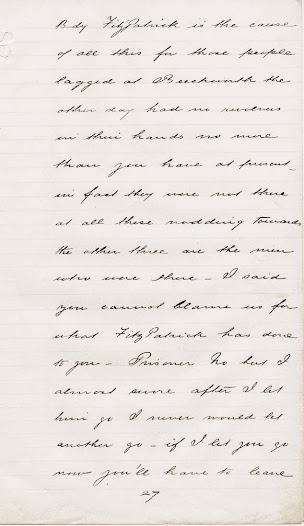 Bdy FitzPatrick is the cause
of all this for those people
lagged at Beechworth the
other day had no revolvers
in their hands no more
than you have at present -
in fact they were not there
at all these nodding towards
the other three are the men
who were there - I said
you cannot blame us for
what FitzPatrick has done
to you - Prisoner No but I
almost swore after I let
him go I never would let
another go - if I let you go
now you'll have to leave
27